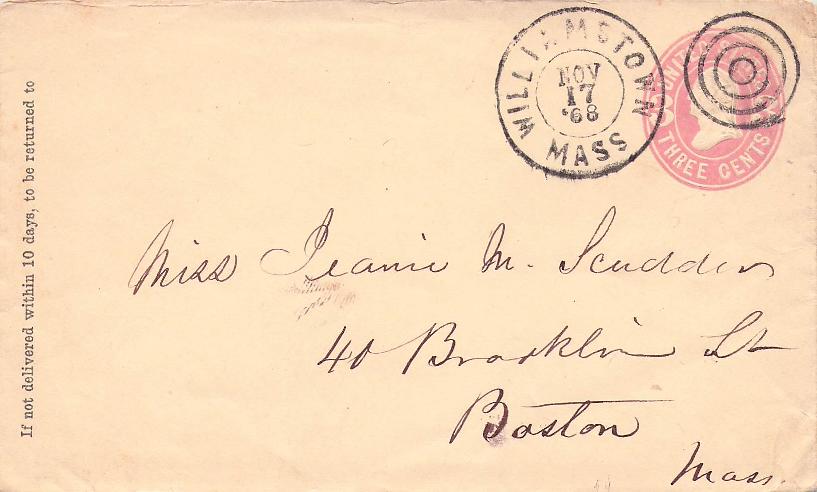 If not delivered within 10 days, to be returned to
WILLIAMSTOWN MASS
NOV
17
'68
UNITED
THREE CENTS
Miss Jeanie M. Scudder
40 Brooklin St
Boston
Mass.